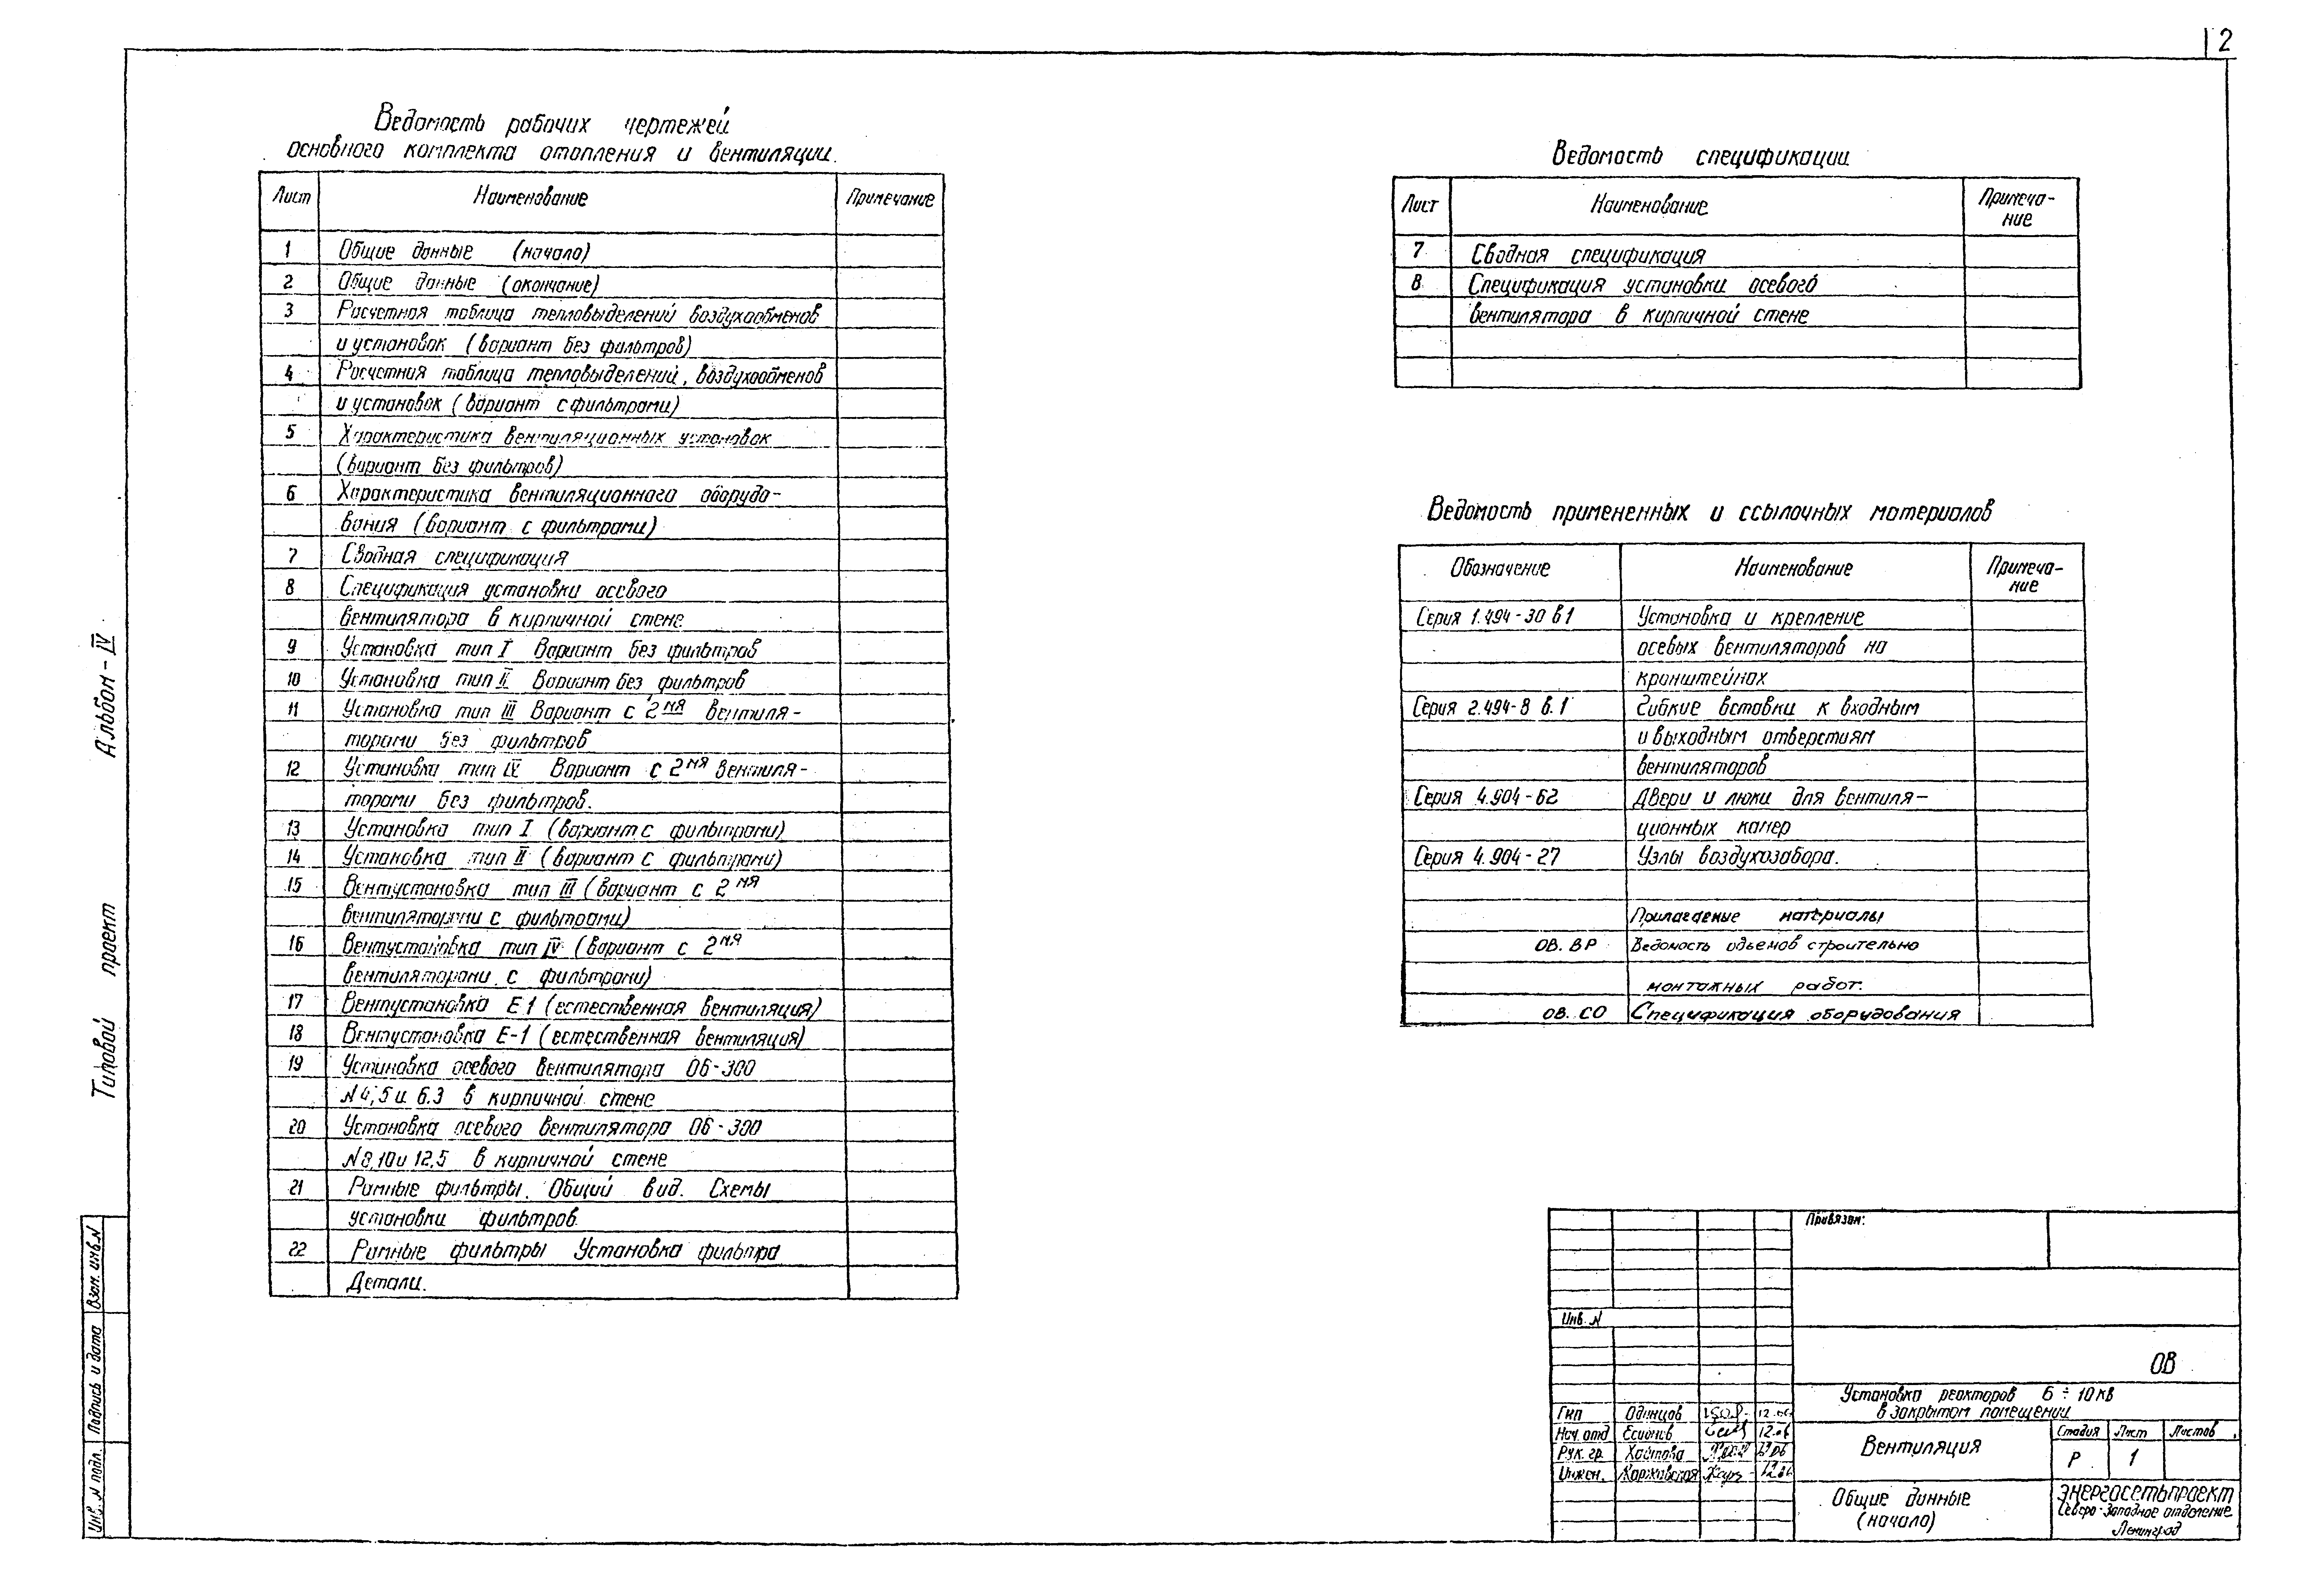 2
Ведомость рабочих чертежей
основного комплекта отопления и вентиляции.
Лист Наименование Примечание
1 Общие данные (начало)
2 Общие данные (окончание)
3 Расчетная таблица тепловыделений воздухообменов
и установок (вариант без фильтров)
4 Расчетная таблица тепловыделений, воздухообменов
и установок (вариант с фильтрами)
5 Характеристика вентиляционных установок
(вариант без фильтров)
6 Характеристика вентиляционного оборудо-
вания (вариант с фильтрами)
7 Сводная спецификация
8 Спецификация установки осевого
вентилятора в кирпичной стене
9 Установка тип I Вариант без фильтров
10 Установка тип II Вариант без фильтров
11 Установка тип III Вариант с 2мя вентиля-
торами без фильтров
12 Установка тип IV Вариант с 2мя вентиля-
торами без фильтров.
13 Установка тип I (вариант с фильтрами)
14 Установка тип II (вариант с фильтрами)
15 Вентустановка тип III (вариант с 2мя
вентиляторами с фильтрами)
16 Вентустановка тип IV (вариант с 2мя
вентиляторами с фильтрами)
17 Вентустановка Е1 (естественная вентиляция)
18 Вентустановка Е-1 (естественная вентиляция)
19 Установка осевого вентилятора 06-300
N4,5 и 6.3 в кирпичной стене
20 Установка осевого вентилятора 06-300
N8,10 и 12,5 в кирпичной стене
21 Рамные фильтры. Общий вид. Схемы
установки фильтров.
22 Рамные фильтры Установка фильтра
Детали.
Ведомость спецификации
Лист Наименование Примеча-
ние
7 Сводная спецификация
8 Спецификация установки осевого
вентилятора в кирпичной стене
Ведомость примененных и ссылочных материалов
Обозначение Наименование Примеча-
ние
Серия 1.494-30 в1 Установка и крепление
осевых вентиляторов на
кронштейнах
Серия 2.494-8 в.1 Гибкие вставки к входным
и выходным отверстиям
вентиляторов
Серия 4.904-62 Двери и люки для вентиля-
ционных камер
Серия 4.904-27 Узлы воздухозабора.
Прилагаемые материалы
ОВ.ВР Ведомость объемов строительно
монтажных работ.
ОВ.СО Спецификация оборудования
Типовой проект Альбом-IV
Взам. инв.N
Подпись и дата
Инв. N подл.
Привязан:
Инв. N
ОВ
Установка реакторов 6÷10кв
в закрытом помещении
Гип Одинцов 12.06
Нач. отд Есионов 12.06
Рук. гр. Хаитова
Инжен. Коржавская
Вентиляция
Стадия Лист Листов
Р 1
Общие данные
(начало)
ЭНЕРГОСЕТЬПРОЕКТ
Северо-Западное отделение
Ленинград